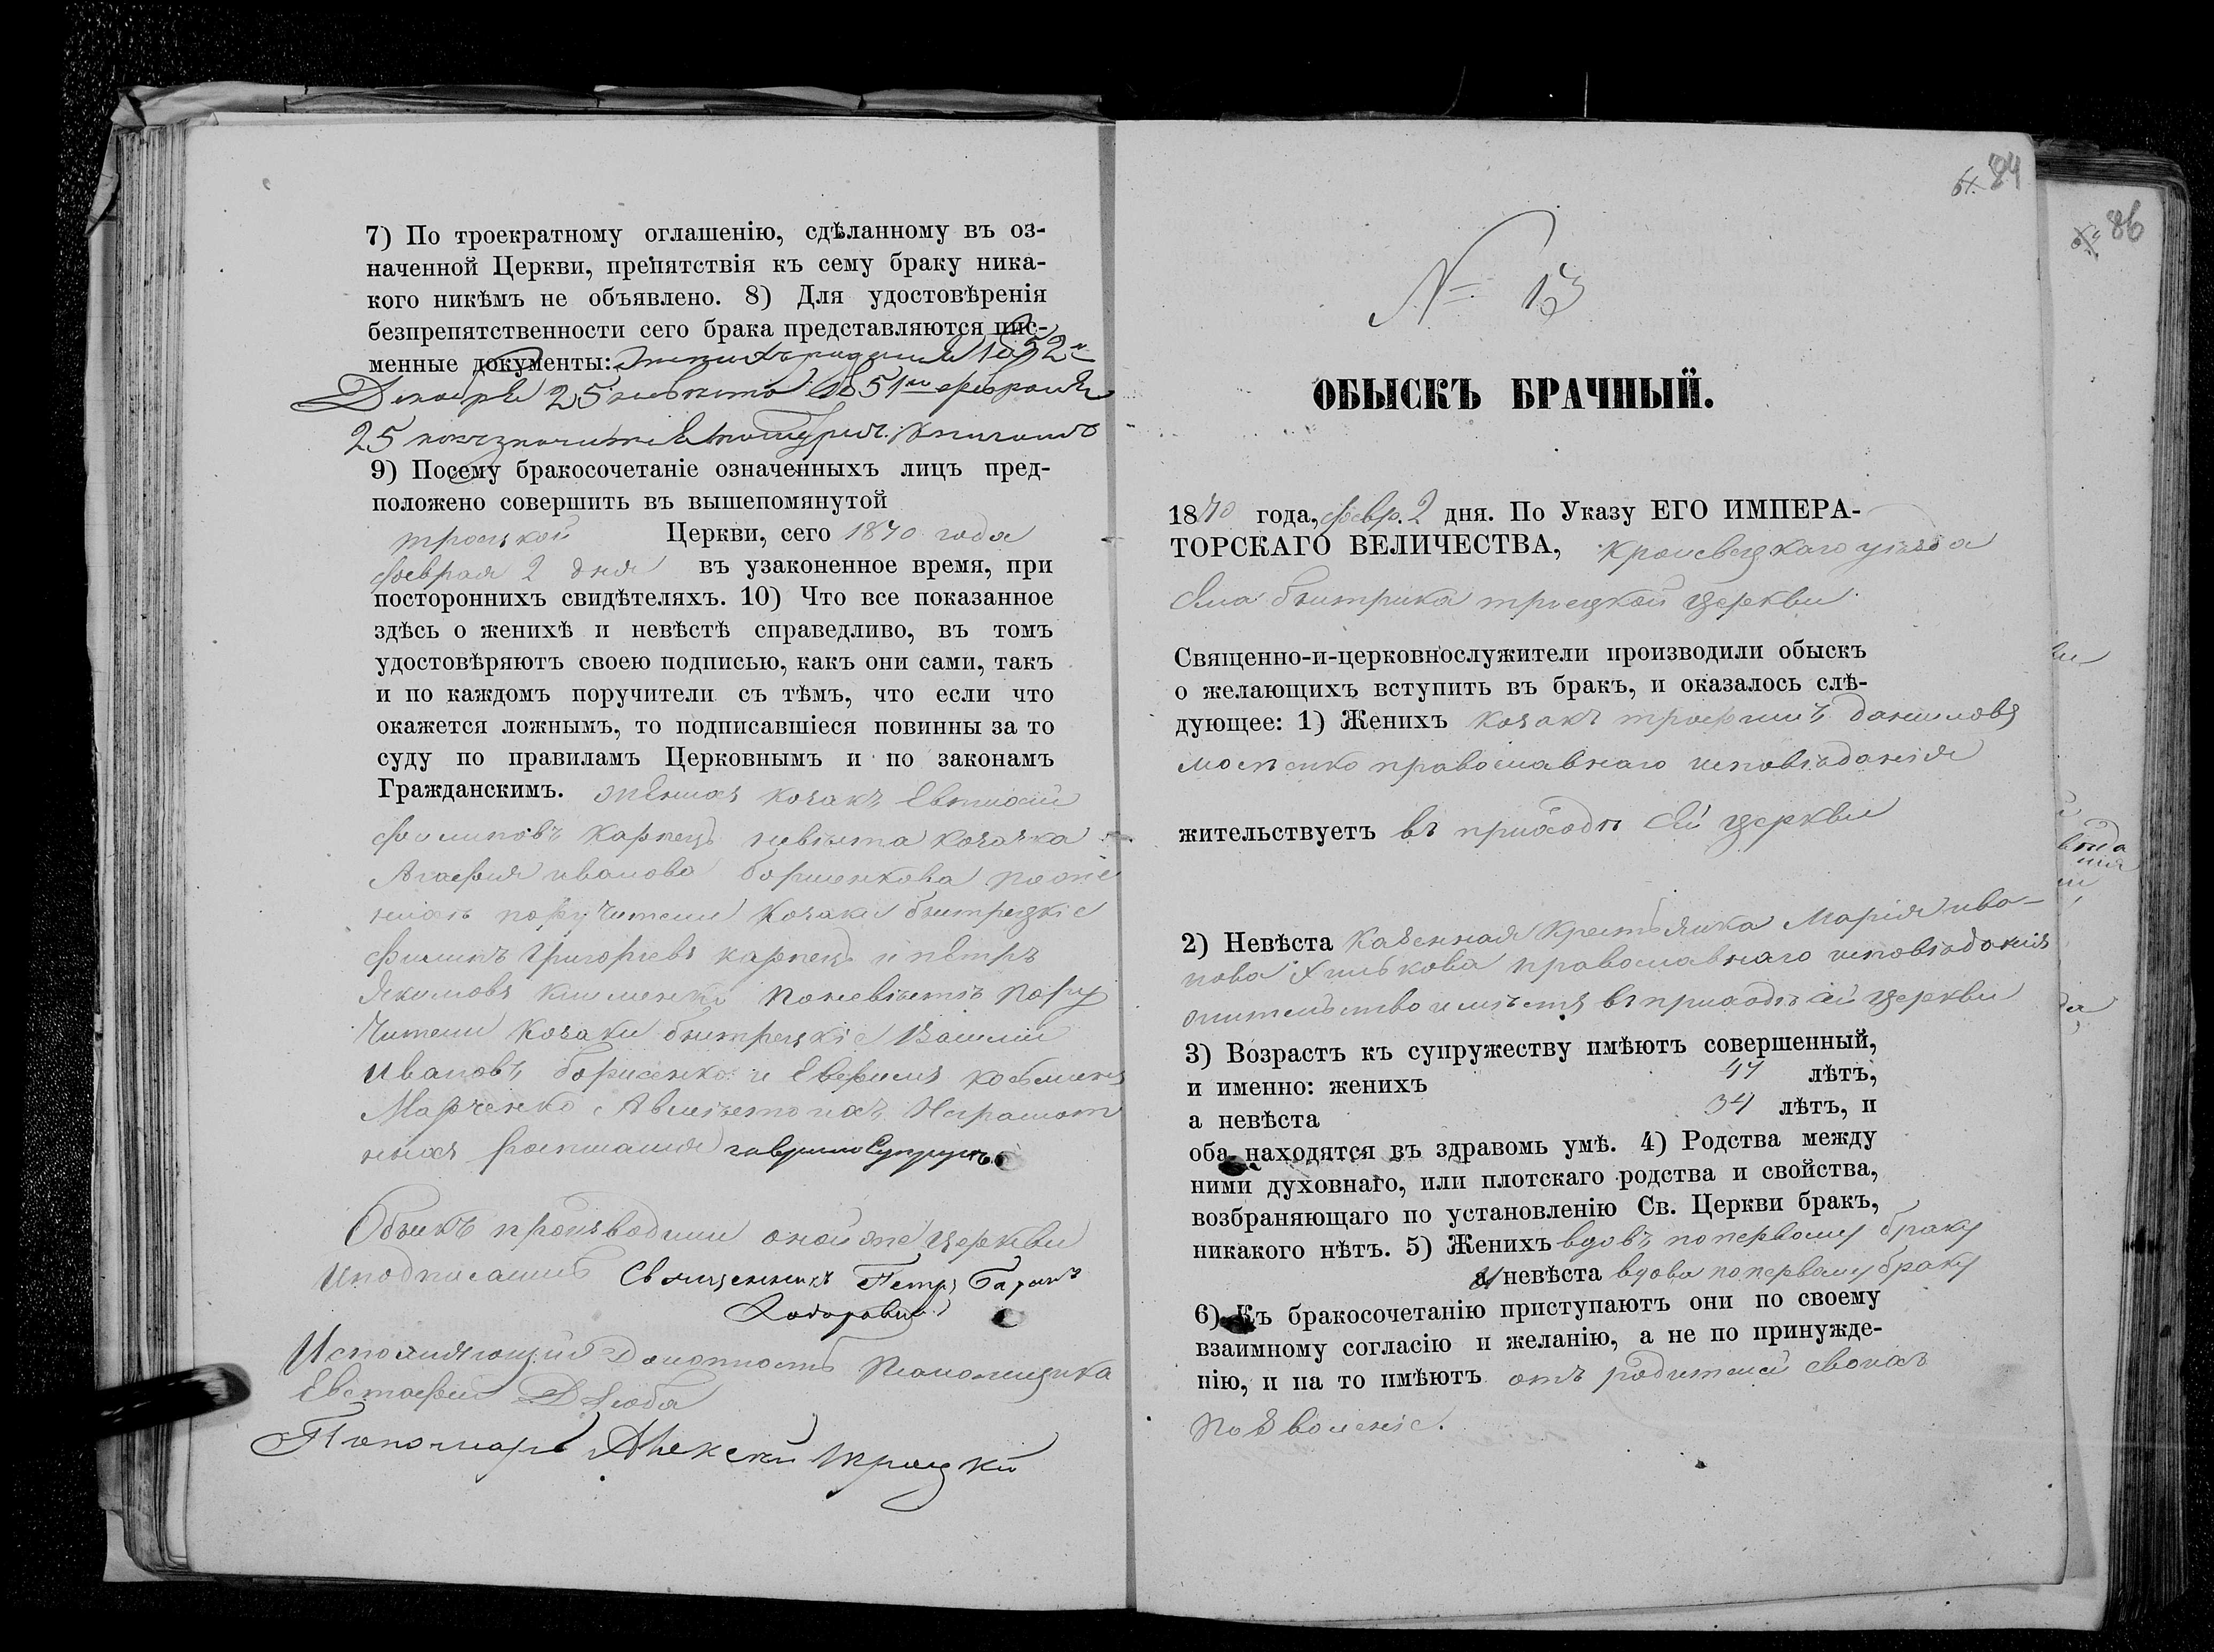 7) По троекратному оглашенію, сдѣланному въ оз-
наченной Церкви, препятствія къ сему браку ника-
кого никѣмъ не объявлено. 8) Для удостовѣренія
безпрепятственности сего брака представляются пис-
менные документы: 1852
Декабря 25 невѣста 1851 февраля
25
9) Посему бракосочетаніе означенныхъ лицъ пред-
положено совершить въ вышепомянутой
троецкой Церкви, сего 1870 года
февраля 2 дня въ узаконенное время, при
постороннихъ свидѣтеляхъ. 10) Что все показанное
здѣсь о женихѣ и невѣстѣ справедливо, въ томъ
удостовѣряютъ своею подписью, какъ они сами, такъ
и по каждомъ поручители съ тѣмъ, что если что
окажется ложнымъ, то подписавшіеся повинны за то
суду по правиламъ Церковнымъ и по законамъ
Гражданскимъ. женихъ козакъ Евтихій
филиповъ карпецъ невѣста козачка
Агафия иванова борисенкова по же
нихъ поручители козаки бытрецкіе
филипъ григорьевъ карпецъ и пётръ
Якимовъ клименко по невѣстѣ пору
чители козаки бытрецкіе Василий
Ивановъ борисенко и Евфимъ
Марченко А вмѣсто ихъ Неграмот
ныхъ росписался гаврило Супрунъ
Обыскъ производили оной же церкви
и подписались Священникъ Петръ
Исполняющий Должность Псаломщика
Евстафий Дзюба
Пономарь Алексей троицкий
84
86
№ 13
ОБЫСКЪ БРАЧНЫЙ.
1870 года, февр. 2 дня. По Указу ЕГО ИМПЕРА-
ТОРСКАГО ВЕЛИЧЕСТВА, Кролевецкаго уѣзда
села быстрика троецкой церкви
Священно-и-церковнослужители производили обыскъ
о желающихъ вступить въ бракъ, и оказалось слѣ-
дующее: 1) Женихъ козакъ трофимъ даниловъ
православнаго исповѣданія
жительствуетъ въ приходѣ сей церкви
2) Невѣста казенная крестьянка Марія ива-
нова Хилькова православнаго исповѣданія
жительство имѣетъ въ приходѣ сей церкви
3) Возрастъ къ супружеству имѣютъ совершенный,
и именно: женихъ 44 лѣтъ,
а невѣста 34 лѣтъ, и
оба находятся въ здравомъ умѣ. 4) Родства между
ними духовнаго, или плотскаго родства и свойства,
возбраняющаго по установленію Св. Церкви бракъ,
никакого нѣтъ. 5) Женихъ вдовъ по первому браку
а невѣста вдова по первому браку
6) Къ бракосочетанію приступаютъ они по своему
взаимному согласію и желанію, а не по принужде-
нію, и на то имѣютъ отъ родителей своихъ
позволеніе.